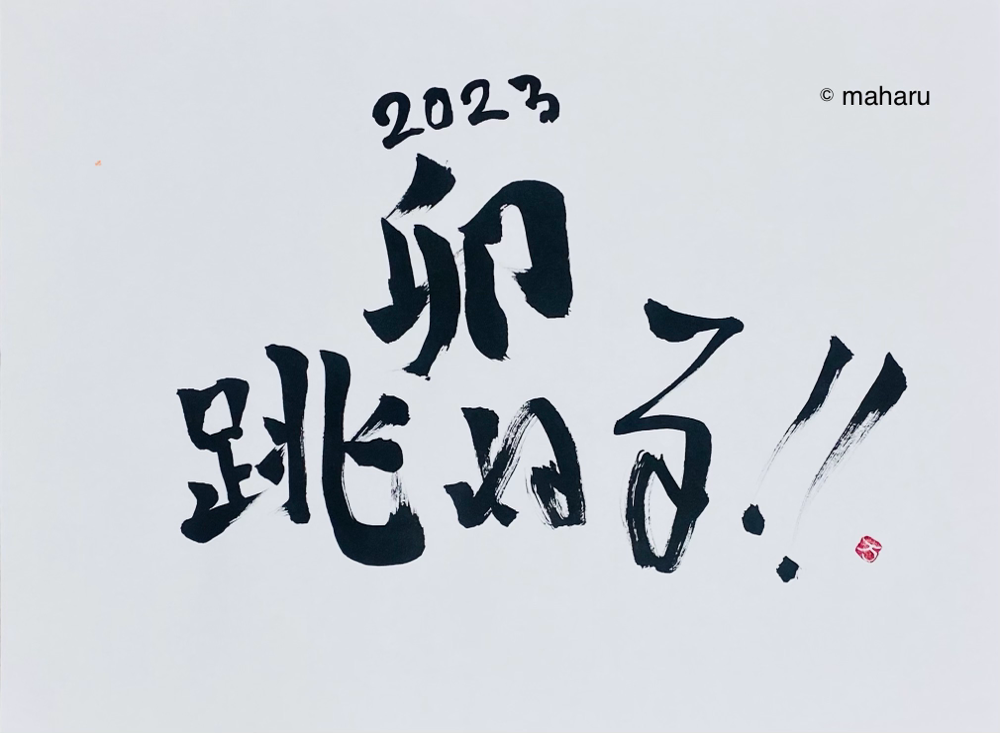 2023
© maharu
卯
跳ねる!!